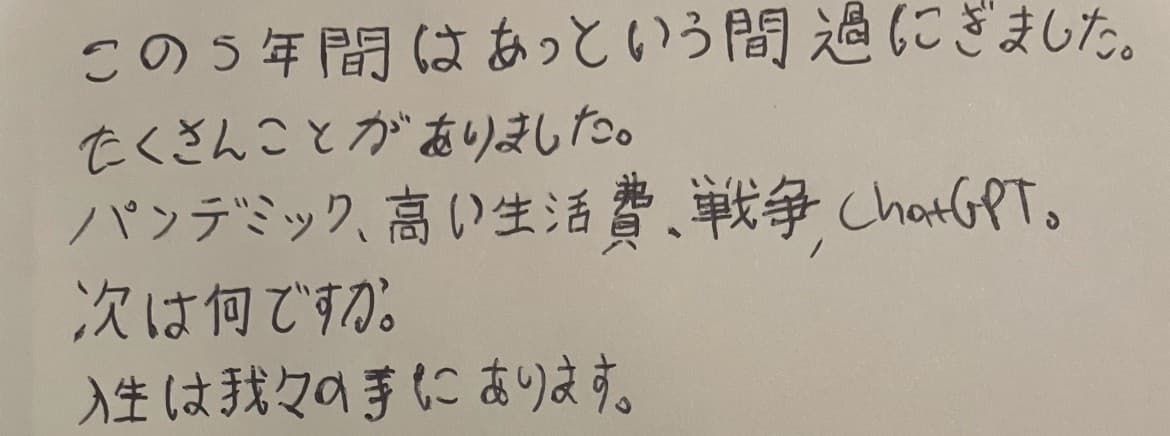 この5年間はあっという間過にぎました。
たくさんことがありました。
パンデミック、高い生活費、戦争, ChatGPT。
次は何ですか。
人生は我々の手にあります。